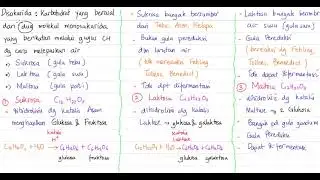 Disakarida : Karbohidrat yang berasal
dari dua molekul monosakarida
yang berikatan melalui gugus OH
dg cara melepaskan air
a) Sukrosa (gula tebu)
b) Laktosa (gula susu)
c) Maltosa (gula pati)
① Sukrosa C₁₂ H₂₂ O₁₁
• dihidrolisis dg katalis Asam
menghasilkan Glukosa & Fruktosa
C₁₂H₂₂O₁₁ + H₂O → C₆H₁₂O₆ + C₆H₁₂O₆
glukosa fruktosa
• Sukrosa banyak bersumber
dari Tebu, Aren, Kelapa
• Bukan gula pereduksi
dlm larutan air
(tdk mereduksi Fehling
Tollens, Benedict)
• Tdk dpt difermentasi
② Laktosa C₁₂H₂₂O₁₁
• dihidrolisis dg katalis
Laktase → glukosa & galaktosa
katalis
Laktase
C₁₂H₂₂O₁₁ + H₂O → C₆H₁₂O₆ + C₆H₁₂O₆
glukosa galaktosa
• Laktosa banyak
air susu
• Gula Pereduksi
(bereaksi dg Fehling,
Tollens, Benedict)
• Tdk dpat difermentasi
③ Maltosa C₁₂H₂₂O₁₁
• dihidrolisis dg katalis
Maltase → 2 Glukosa
• Banyak bersumber dari
• Gula Pereduksi
• Dapat di fermentasi